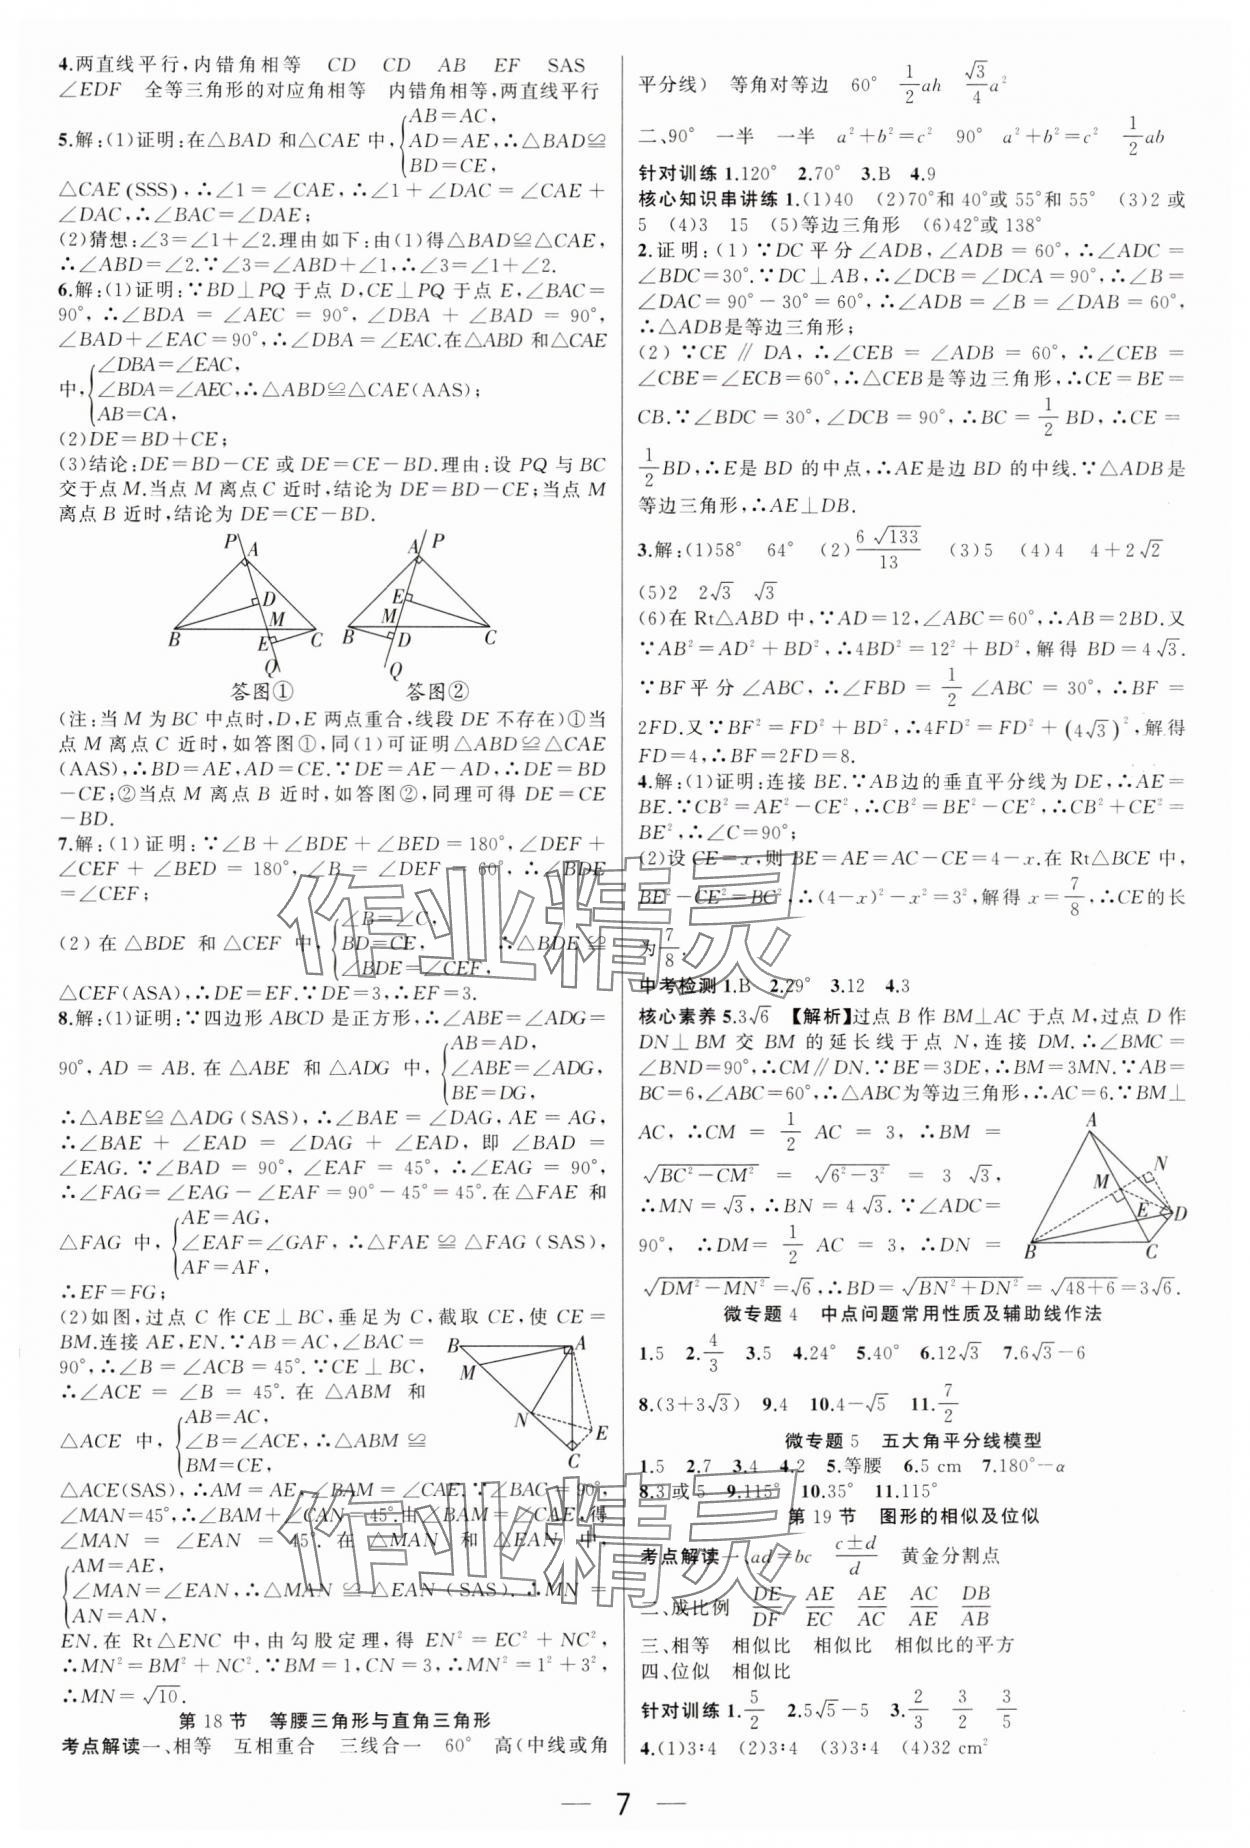 4.两直线平行,内错角相等 CD CD AB EF SAS
∠EDF 全等三角形的对应角相等 内错角相等,两直线平行
5.解:(1)证明:在△BAD和△CAE中,{AB=AC, AD=AE, BD=CE, ∴△BAD≌
△CAE(SSS),∴∠1=∠CAE,∴∠1+∠DAC=∠CAE+
∠DAC,∴∠BAC=∠DAE;
(2)猜想:∠3=∠1+∠2.理由如下:由(1)得△BAD≌△CAE,
∴∠ABD=∠2.∵∠3=∠ABD+∠1,∴∠3=∠1+∠2.
6.解:(1)证明:∵BD⊥PQ于点D,CE⊥PQ于点E,∠BAC=
90°,∴∠BDA=∠AEC=90°,∠DBA+∠BAD=90°,
∠BAD+∠EAC=90°,∴∠DBA=∠EAC.在△ABD和△CAE
中,{∠DBA=∠EAC, ∠BDA=∠AEC, AB=CA, ∴△ABD≌△CAE(AAS);
(2)DE=BD+CE;
(3)结论:DE=BD-CE或DE=CE-BD.理由:设PQ与BC
交于点M.当点M离点C近时,结论为DE=BD-CE;当点M
离点B近时,结论为DE=CE-BD.
P A D M B E C Q
答图①
A P E M B D C Q
答图②
(注:当M为BC中点时,D,E两点重合,线段DE不存在)①当
点M离点C近时,如答图①,同(1)可证明△ABD≌△CAE
(AAS),∴BD=AE,AD=CE.∵DE=AE-AD,∴DE=BD
-CE;②当点M离点B近时,如答图②,同理可得DE=CE
-BD.
7.解:(1)证明:∵∠B+∠BDE+∠BED=180°,∠DEF+
∠CEF+∠BED=180°,∠B=∠DEF=60°,∴∠BDE
=∠CEF;
(2)在△BDE和△CEF中,{∠B=∠C, BD=CE, ∠BDE=∠CEF, ∴△BDE≌
△CEF(ASA),∴DE=EF.∵DE=3,∴EF=3.
8.解:(1)证明:∵四边形ABCD是正方形,∴∠ABE=∠ADG=
90°,AD=AB.在△ABE和△ADG中,{AB=AD, ∠ABE=∠ADG, BE=DG,
∴△ABE≌△ADG(SAS),∴∠BAE=∠DAG,AE=AG,
∴∠BAE+∠EAD=∠DAG+∠EAD,即∠BAD=
∠EAG.∵∠BAD=90°,∠EAF=45°,∴∠EAG=90°,
∴∠FAG=∠EAG-∠EAF=90°-45°=45°.在△FAE和
△FAG中,{AE=AG, ∠EAF=∠GAF, AF=AF, ∴△FAE≌△FAG(SAS),
∴EF=FG;
(2)如图,过点C作CE⊥BC,垂足为C,截取CE,使CE=
BM.连接AE,EN.∵AB=AC,∠BAC=
90°,∴∠B=∠ACB=45°.∵CE⊥BC,
∴∠ACE=∠B=45°.在△ABM和
△ACE中,{AB=AC, ∠B=∠ACE, BM=CE, ∴△ABM≌
B A M N E C
△ACE(SAS),∴AM=AE,∠BAM=∠CAE.∵∠BAC=90°,
∠MAN=45°,∴∠BAM+∠CAN=45°.由∠BAM=∠CAE,得
∠MAN=∠EAN=45°.在△MAN和△EAN中,
{AM=AE, ∠MAN=∠EAN, AN=AN, ∴△MAN≌△EAN(SAS).∴MN=
EN.在Rt△ENC中,由勾股定理,得EN²=EC²+NC²,
∴MN²=BM²+NC².∵BM=1,CN=3,∴MN²=1²+3²,
∴MN=√10.
第18节 等腰三角形与直角三角形
考点解读一、相等 互相重合 三线合一 60° 高(中线或角
平分线) 等角对等边 60° 1/2ah √3/4a²
二、90° 一半 一半 a²+b²=c² 90° a²+b²=c² 1/2ab
针对训练1.120° 2.70° 3.B 4.9
核心知识串讲练1.(1)40 (2)70°和40°或55°和55° (3)2或
5 (4)3 15 (5)等边三角形 (6)42°或138°
2.证明:(1)∵DC平分∠ADB,∠ADB=60°,∴∠ADC=
∠BDC=30°.∵DC⊥AB,∴∠DCB=∠DCA=90°,∴∠B=
∠DAC=90°-30°=60°,∴∠ADB=∠B=∠DAB=60°,
∴△ADB是等边三角形;
(2)∵CE∥DA,∴∠CEB=∠ADB=60°,∴∠CEB=
∠CBE=∠ECB=60°,∴△CEB是等边三角形,∴CE=BE=
CB.∵∠BDC=30°,∠DCB=90°,∴BC=1/2BD,∴CE=
1/2BD,∴E是BD的中点,∴AE是边BD的中线.∵△ADB是
等边三角形,∴AE⊥DB.
3.解:(1)58° 64° (2)6√133/13 (3)5 (4)4 4+2√2
(5)2 2√3 √3
(6)在Rt△ABD中,∵AD=12,∠ABC=60°,∴AB=2BD.又
∵AB²=AD²+BD²,∴4BD²=12²+BD²,解得BD=4√3.
∵BF平分∠ABC,∴∠FBD=1/2∠ABC=30°,∴BF=
2FD.又∵BF²=FD²+BD²,∴4FD²=FD²+(4√3)²,解得
FD=4,∴BF=2FD=8.
4.解:(1)证明:连接BE.∵AB边的垂直平分线为DE,∴AE=
BE.∵CB²=AE²-CE²,∴CB²=BE²-CE²,∴CB²+CE²=
BE²,∴∠C=90°;
(2)设CE=x,则BE=AE=AC-CE=4-x.在Rt△BCE中,
BE²-CE²=BC²,∴(4-x)²-x²=3²,解得x=7/8,∴CE的长
为7/8.
中考检测1.B 2.29° 3.12 4.3
核心素养5.3√6 【解析】过点B作BM⊥AC于点M,过点D作
DN⊥BM交BM的延长线于点N,连接DM.∴∠BMC=
∠BND=90°,∴CM∥DN.∵BE=3DE,∴BM=3MN.∵AB=
BC=6,∠ABC=60°,∴△ABC为等边三角形,∴AC=6.∵BM⊥
AC,∴CM=1/2AC=3,∴BM=
√(BC²-CM²)=√(6²-3²)=3√3,
∴MN=√3,∴BN=4√3.∵∠ADC=
90°,∴DM=1/2AC=3,∴DN=
A N M E D B C
√(DM²-MN²)=√6,∴BD=√(BN²+DN²)=√(48+6)=3√6.
微专题4 中点问题常用性质及辅助线作法
1.5 2.4/3 3.5 4.24° 5.40° 6.12√3 7.6√3-6
8.(3+3√3) 9.4 10.4-√5 11.7/2
微专题5 五大角平分线模型
1.5 2.7 3.4 4.2 5.等腰 6.5 cm 7.180°-α
8.3或5 9.115° 10.35° 11.115°
第19节 图形的相似及位似
考点解读一、ad=bc (c±d)/d 黄金分割点
二、成比例 DE/DF AE/EC AE/AC AC/AE DB/AB
三、相等 相似比 相似比 相似比的平方
四、位似 相似比
针对训练1.5/2 2.5√5-5 3.2/3 3/2 3/5
4.(1)3∶4 (2)3∶4 (3)3∶4 (4)32 cm²
— 7 —
作业精灵
作业精灵